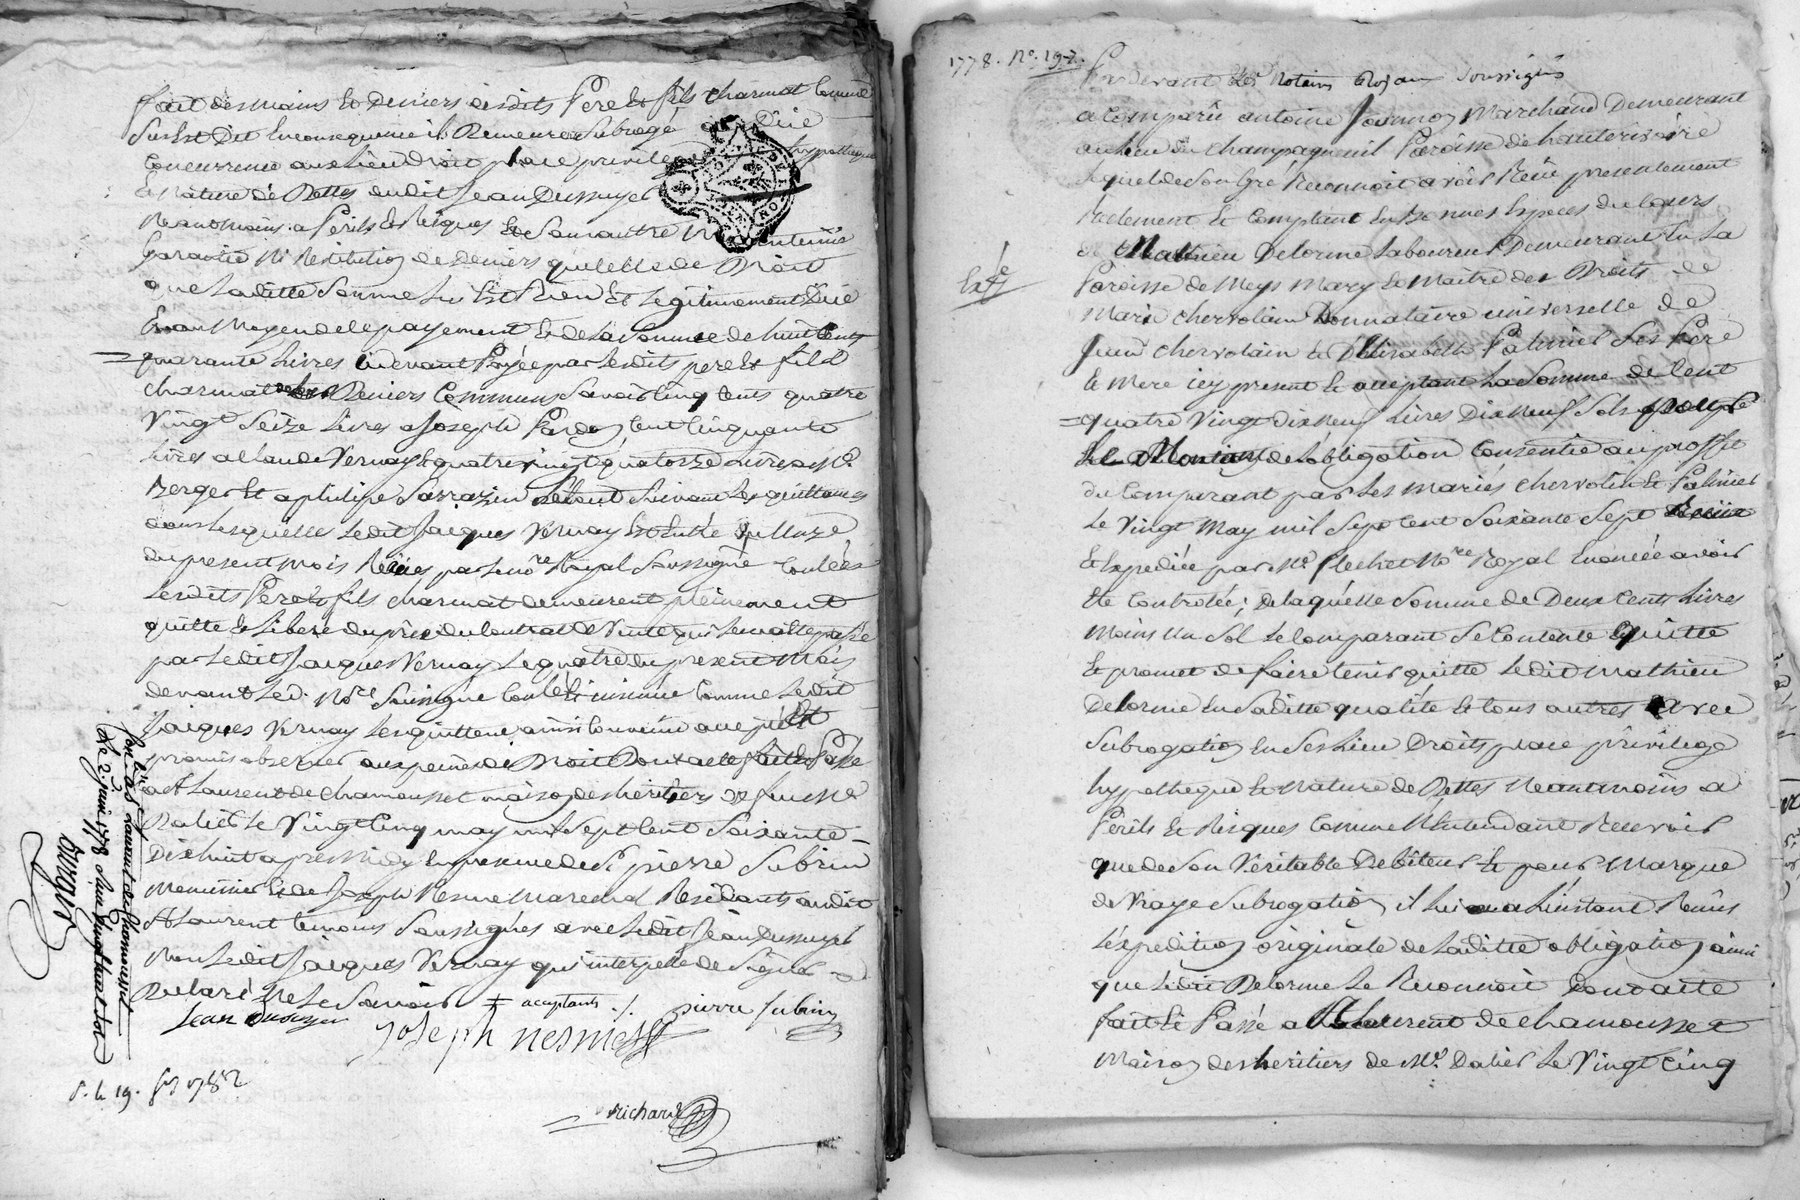 fait des mains et Deniers desdits Pere et fils charmat Comme
Susest Dit En consequence il Demeure Subrogé Düe
Concurrence aux lieu Droit place privilege hypotheque
Et Nature de Dettes dudit Jean Dussuyet
Neantmoins a Perils Et Risques Et Sans autre Maintenüe
Garantie Ni Restitution de deniers que celle de Droit
que Laditte Somme Lui Est Bien Et Legitimement Düe
Et au Moyen de ce payement Et de La Somme de huit Cents
quarante Livres Cidevant Payée par Lesdits pere Et fils
charmat de Leurs Deniers Communs Savoir Cinq Cents quatre
Vingt Seize Livres a Joseph Cent Cinquante
Livres a Claude Vernay Et quatre vingt quatorze Livres a Me.
Berger Et a philipe Sarrazin Le tout Suivant Les quittances
dans Lesquelles Ledit Jacques Vernay Est Entré Du Onze
du present mois Reçües par Le nore. Royal Soussigné Contlées
Lesdits Pere Et fils charmat demeurent pleinement
quitte Et Liberé du prix du Contrat De Vente qui Leur a été passé
par Ledit Jacques Vernay Le quatre du present Mois
devant Led. Nore. Soussigné Contlé Et insinué Comme Ledit
Jacques Vernay Les quittent ainsi Convenu accepté Et
promis observer aux peines de Droit Dont acte fait Et Passé
a St Laurent de chamousset maison des heritiers de feu Me
Dalier Le Vingt Cinq may mil Sept Cent Soixante
Dix huit apres Midy En presence de Sr. pierre Subrin
Menuisier Et de Joseph Nesme Marechal Residants audit
St Laurent temoins Soussignés avec Ledit Jean Dussuyet
Non Ledit Jacques Vernay qui interpellé de Signer a
Declaré Ne Le Savoir ‡ acceptants ./. pierre subrin
Jean Dussuyer
Joseph nesme
Conlé a st Laurent de Chamousset
Le 2. juin 1778
S. le 19. 1782
Richard
1778. No. 197.
Pardevant Le Notaire Royal Soussigné
a Comparü antoine Marchand Demeurant
au lieu du Champagneuil Paroisse de hauterivoire
Lequel de Son Gré Reconnoit avoir Reçu presentement
Réelement Et Comptant En Bonnes Especes du Cours
de Mathieu Delorme Laboureur Demeurant En La
Paroisse de Meys Mary Et Maitre des Droits de
Marie chervolain Donnataire universelle de
Jean chervolain Et D'Elisabeth Palmier Ses Pere
Et Mere icy present Et acceptant La Somme de Cent
quatre Vingt Dix Neuf Livres Dix Neuf Sols
Le Montant de L'obligation Consentie au proffit
du Comparant par Les mariés Chervolin Et Palmier
Le Vingt May mil Sept Cent Soixante Sept Reçüe
Et Expediée par Me. Nore Royal Enoncée avoir
Eté Controlée; de laquelle Somme de Deux Cents Livres
Moins Un Sol Le Comparant Se Contente Quitte
Et promet de faire tenir quitte Ledit Mathieu
Delorme En Saditte qualité Et tous autres avec
Subrogation En Ses Lieu Droits place privilege
hypotheque Et Nature de Dettes Neantmoins a
Perils Et Risques Comme N'Entendant Recevoir
que de Son Veritable Debiteur Et pour Marque
de Vraye Subrogation il lui a a Linstant Remis
L'expedition originale de Laditte obligation ainsi
que Ledit Delorme Le Reconnoit Dont acte
fait Et Passé a St Laurent de chamousset
Maison des heritiers de Me. Dalier Le Vingt Cinq